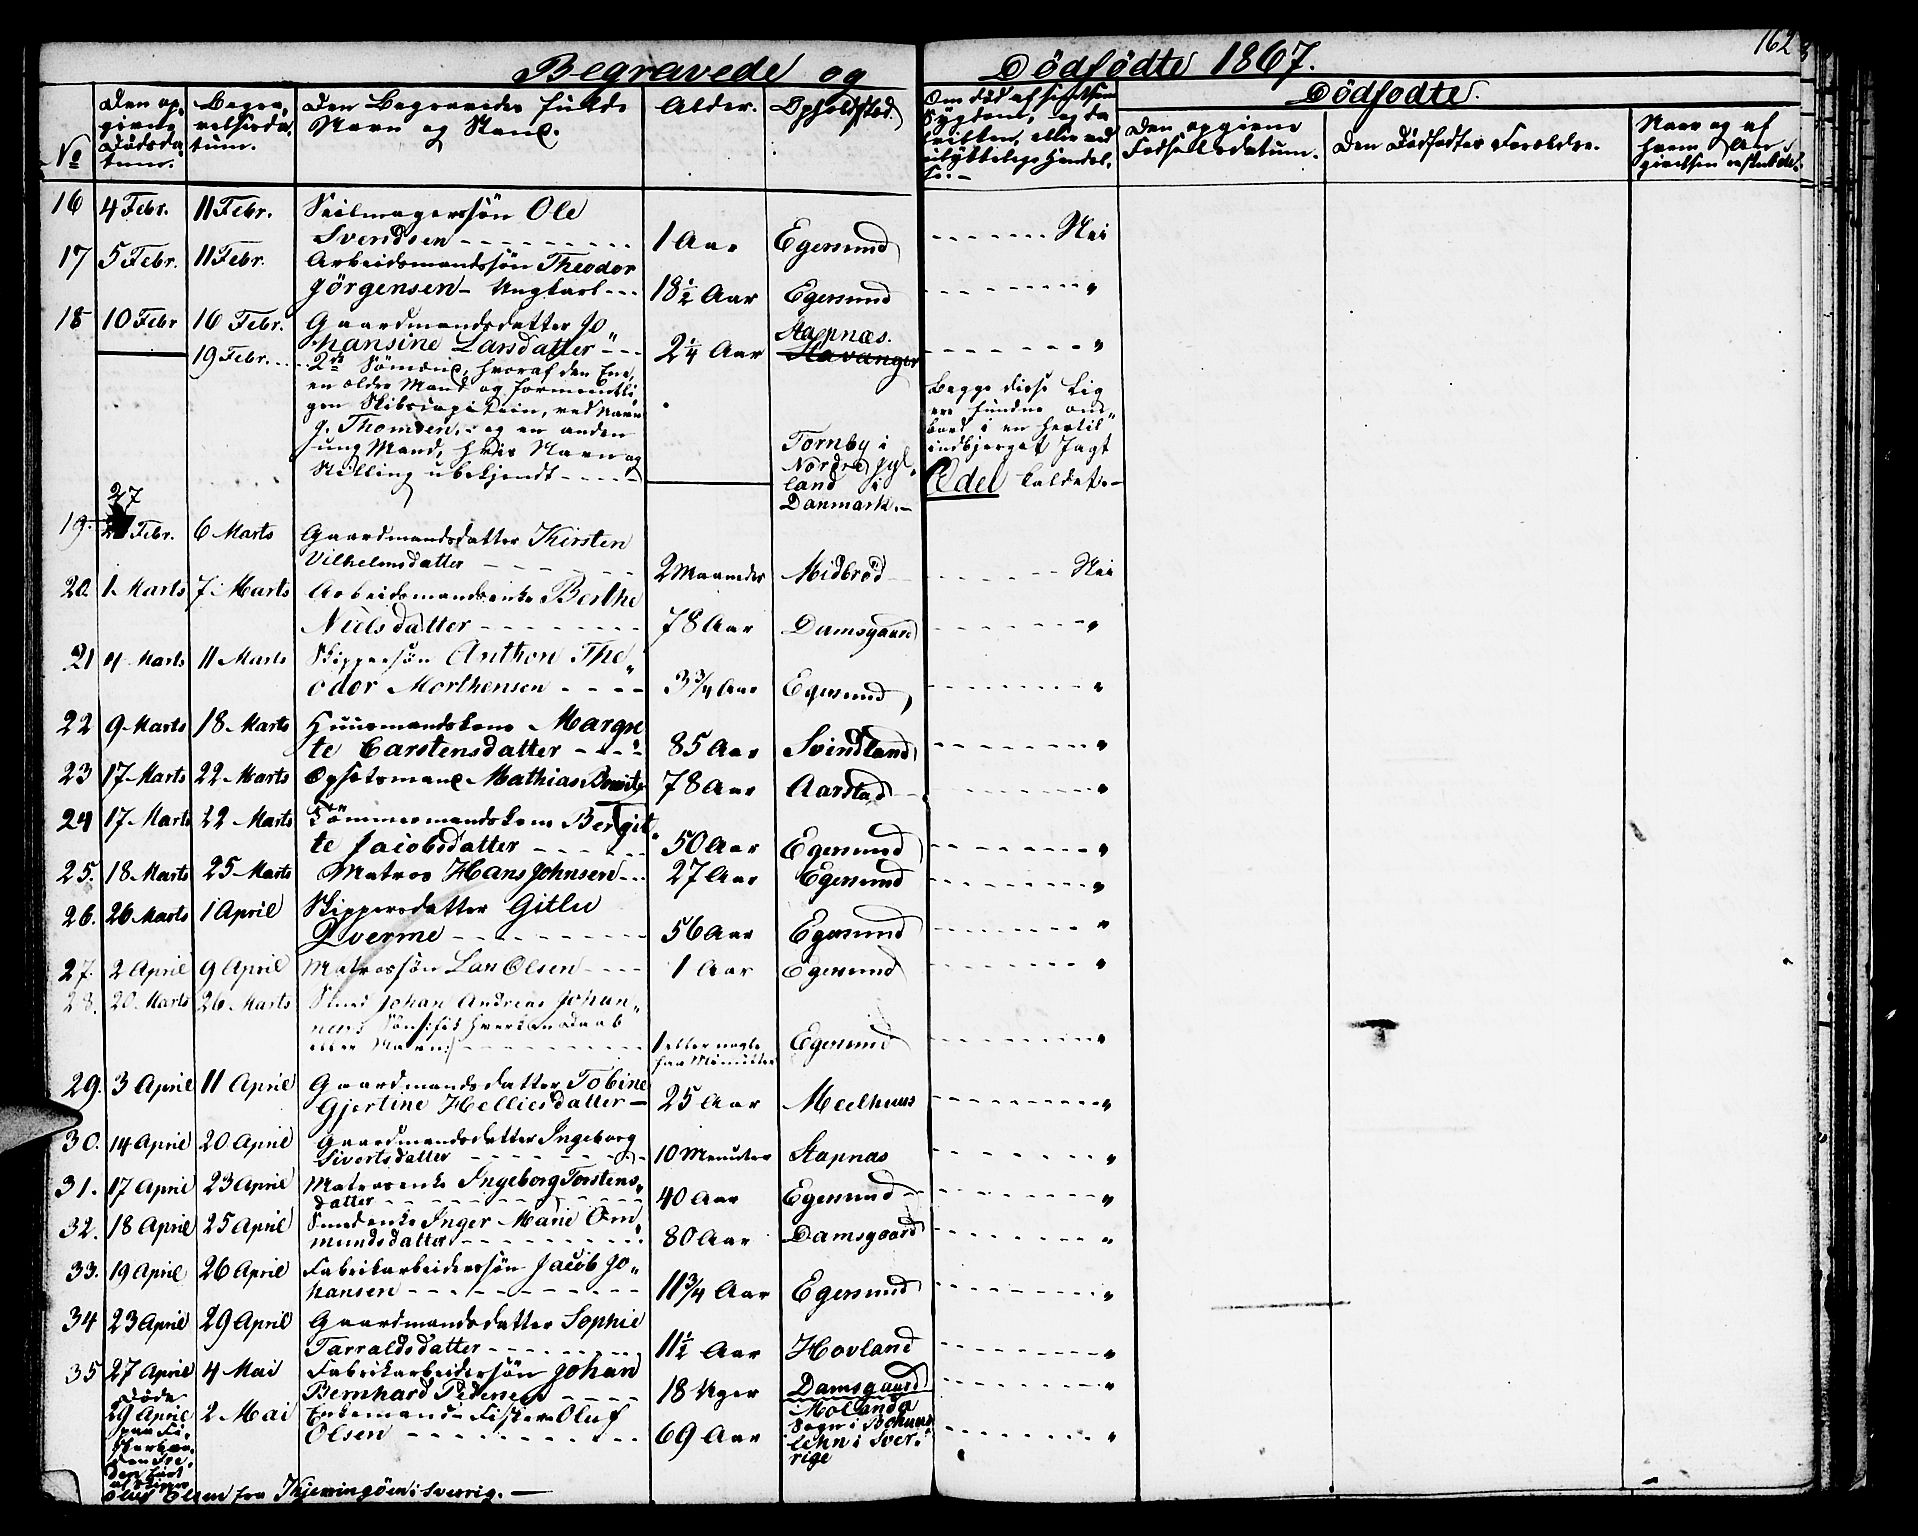 162
Begravede og Dödfödte 1867.
Dödfödte.
No
Den op-
givne
Dödsda
tum.
Begra-
velsesda-
tum.
Den Begravedes fulde
Navn og Stand.
Alder.
Opholdssted.
Om död af smitsom
Sygdom, og da
hvilken, eller ved
ulykkelige Hændel-
se.-
Den opgivne
Födselsdatum.
Den Dödfödtes Forældre.
Naar og af
hvem An-
givelsen
16 4 Febr. 11 Febr. Seilmagerssön Ole
Svendsen 1 Aar Egersund Nei
17 5 Febr. 11 Febr. Arbeidsmandssön Theodor
Jörgensen - Ungkarl 18 1/2 Aar Egersund "
18 10 Febr 16 Febr. Gaardmandsdatter Jo„
hansine Larsdatter 2 1/4 Aar Stapnæs. Stavanger "
19 Febr. 2de Sömænd, hvoraf den Ene,
en ældre Mand og formentli„
gen Skibscapitain, ved Navn
J. Thomsen, - og en anden
ung Mand, hvis Navn og
Stilling ubekjendt
Tornby i
Nordre Jyl„
land i
Danmark.-
Begge disse Lig
ere fundne om„
bord i en hertil
indbjerget Jagt
Ædel kaldet.-
27
19. Febr. 6 Marts Gaardmandsdatter Kirsten
Vilhelmsdatter 2 Maaneder Midbröd Nei
20. 1 Marts 7 Marts Arbeidsmandsenke Berthe
Nielsdatter 78 Aar Damsgaard "
21 4 Marts 11 Marts Skipperssön Anthon The„
odor Morthensen 3 3/4 Aar Egersund "
22 9 Marts 18 Marts Huusmandskone Margre
te Carstensdatter 85 Aar Svindland "
23 17 Marts 22 Marts Opsatsmand Mathias 78 Aar Aarstad "
24 17 Marts 22 Marts Tömmermandskone Bergit„
te Jacobsdatter 50 Aar Egersund "
25. 18 Marts 25 Marts Matros Hans Johnsen 27 Aar Egersund "
26. 26 Marts 1 April Skippersdatter Gitle
Qverme 56 Aar Egersund "
27. 2 April 9 April Matrossön Lars Olsen 1 Aar Egersund "
28. 20 Marts 26 Marts Smed Johan Andreas Johan„
nens Sön fik hverken Daab
eller Navn 1 eller nogle
faa Minutter Egersund "
29. 3 April 11 April Gaardmandsdatter Tobine
Gjertine Helliesdatter 25 Aar Meelhuus "
30. 14 April 20 April Gaardmandsdatter Ingeborg
Sivertsdatter 10 Minuter Stapnæs "
31. 17 April 23 April Matrosenke Ingeborg Torstens„
datter 40 Aar Egersund "
32. 18 April 25 April Smedenke Inger Marie Om„
mundsdatter 80 Aar Damsgaard "
33. 19 April 26 April Fabrikarbeiderssön Jacob Jo„
hansen 11 3/4 Aar Egersund "
34 23 April 29 April Gaardmandsdatter Sophie
Tarraldsdatter 11 1/2 Aar Hovland "
35 27 April 4 Mai Fabrikarbeiderssön Johan
Bernhard Pedersen 18 Uger Damsgaard "
Döde
29 April 2 Mai Enkemand Fisker Oluf
Olsen 69 Aar Molanda
Sogn i Bohuus
lehn i Sver„
rige "
Oluf Olsen fra Kjerringöen i Sverrig.-